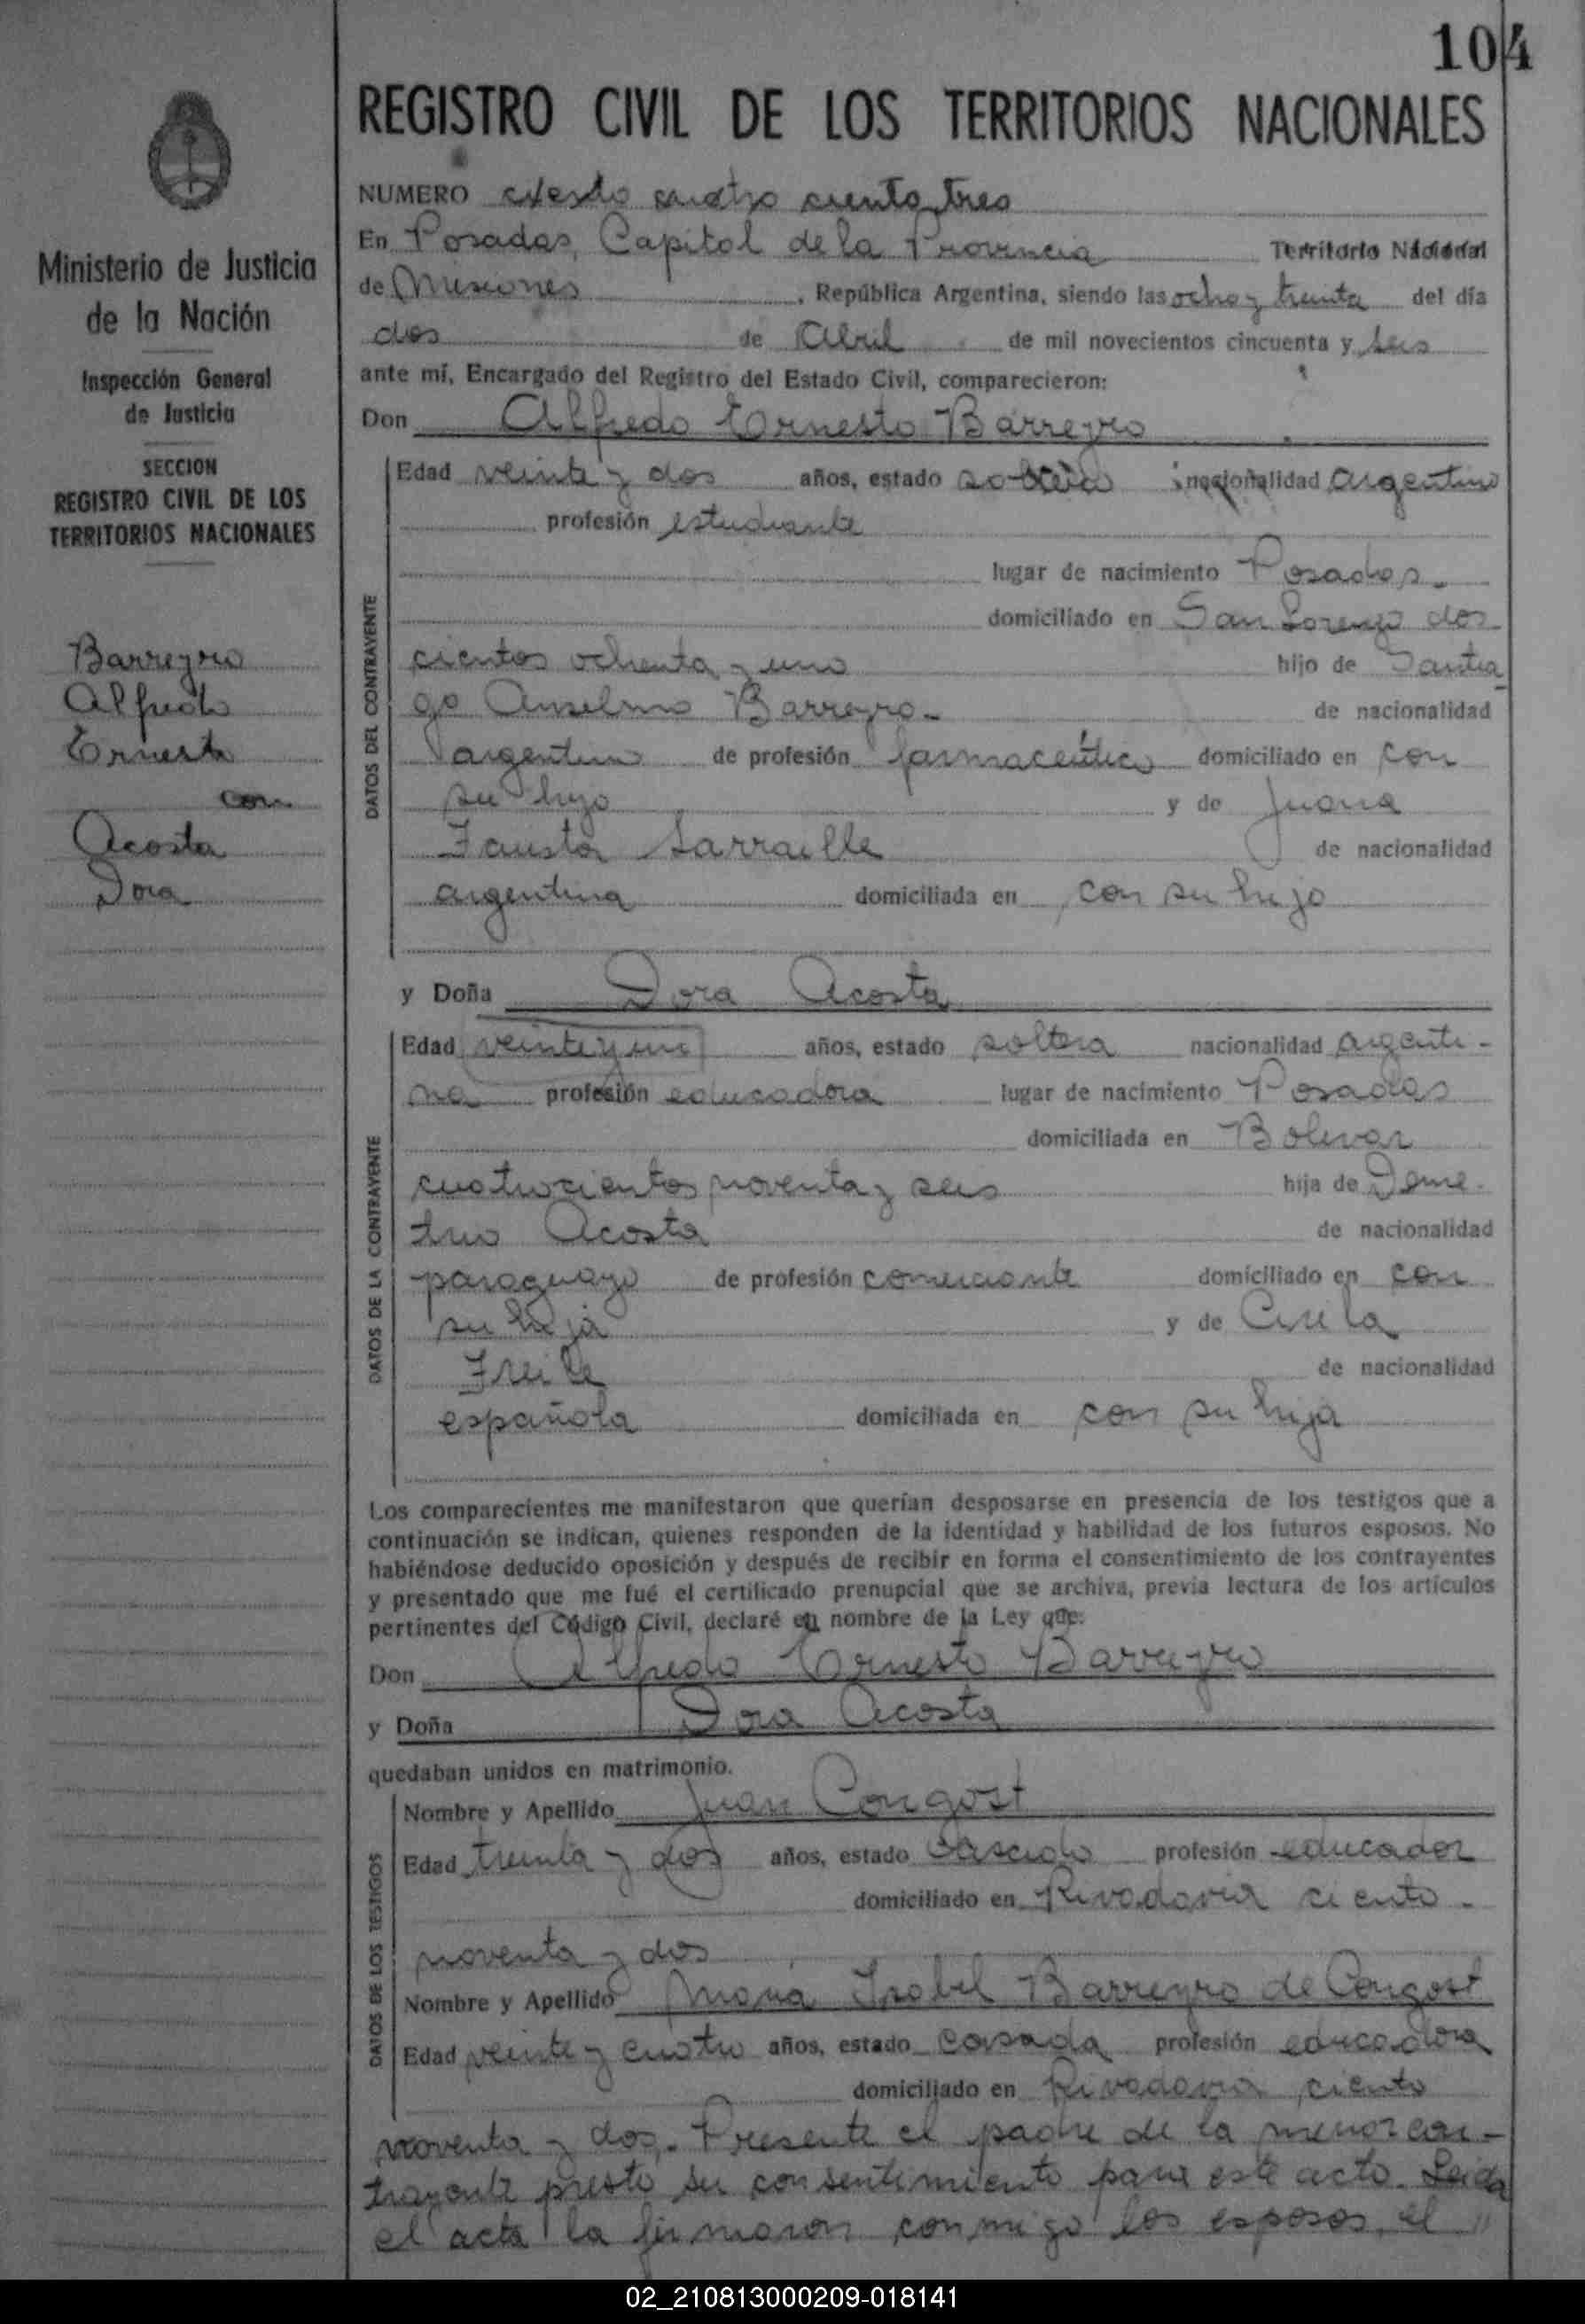 104
REGISTRO CIVIL DE LOS TERRITORIOS NACIONALES
Ministerio de Justicia
de la Nación
Inspección General
de Justicia
SECCION
REGISTRO CIVIL DE LOS
TERRITORIOS NACIONALES
Barreyro
Alfredo
Ernesto
con
Acosta
Dora
NUMERO ciento tres
En Posadas, Capital de la Provincia Territorio Nacional
de Misiones, República Argentina, siendo las ocho y treinta del día
dos de Abril de mil novecientos cincuenta y seis
ante mí, Encargado del Registro del Estado Civil, comparecieron:
Don Alfredo Ernesto Barreyro
DATOS DEL CONTRAYENTE
Edad veinte y dos años, estado soltero nacionalidad argentino
profesión estudiante
lugar de nacimiento Posadas.
domiciliado en San Lorenzo dos
cientos ochenta y uno hijo de Santia
go Anselmo Barreyro.- de nacionalidad
argentino de profesión farmacéutico domiciliado en con
su hijo y de Juana
Fausta Larraille de nacionalidad
argentina domiciliada en con su hijo
y Doña Dora Acosta
DATOS DE LA CONTRAYENTE
Edad veinte y uno años, estado soltera nacionalidad argenti-
na profesión educadora lugar de nacimiento Posadas
domiciliada en Bolivar
cuatrocientos noventa y seis hija de Deme-
trio Acosta de nacionalidad
paraguayo de profesión comerciante domiciliado en con
su hija y de Cirila
Freile de nacionalidad
española domiciliada en con su hija
Los comparecientes me manifestaron que querían desposarse en presencia de los testigos que a
continuación se indican, quienes responden de la identidad y habilidad de los futuros esposos. No
habiéndose deducido oposición y después de recibir en forma el consentimiento de los contrayentes
y presentado que me fué el certificado prenupcial que se archiva, previa lectura de los artículos
pertinentes del Código Civil, declaré en nombre de la Ley que:
Don Alfredo Ernesto Barreyro
y Doña Dora Acosta
quedaban unidos en matrimonio.
DATOS DE LOS TESTIGOS
Nombre y Apellido Juan Congost
Edad treinta y dos años, estado casado profesión educador
domiciliado en Rivadavia ciento
noventa y dos
Nombre y Apellido María Isabel Barreyro de Congost
Edad veinte y cuatro años, estado casada profesión educadora
domiciliado en Rivadavia ciento
noventa y dos.- Presente el padre de la menor con-
trayente prestó su consentimiento para este acto. Leida
el acta la firmaron conmigo los esposos, el
02_210813000209-018141